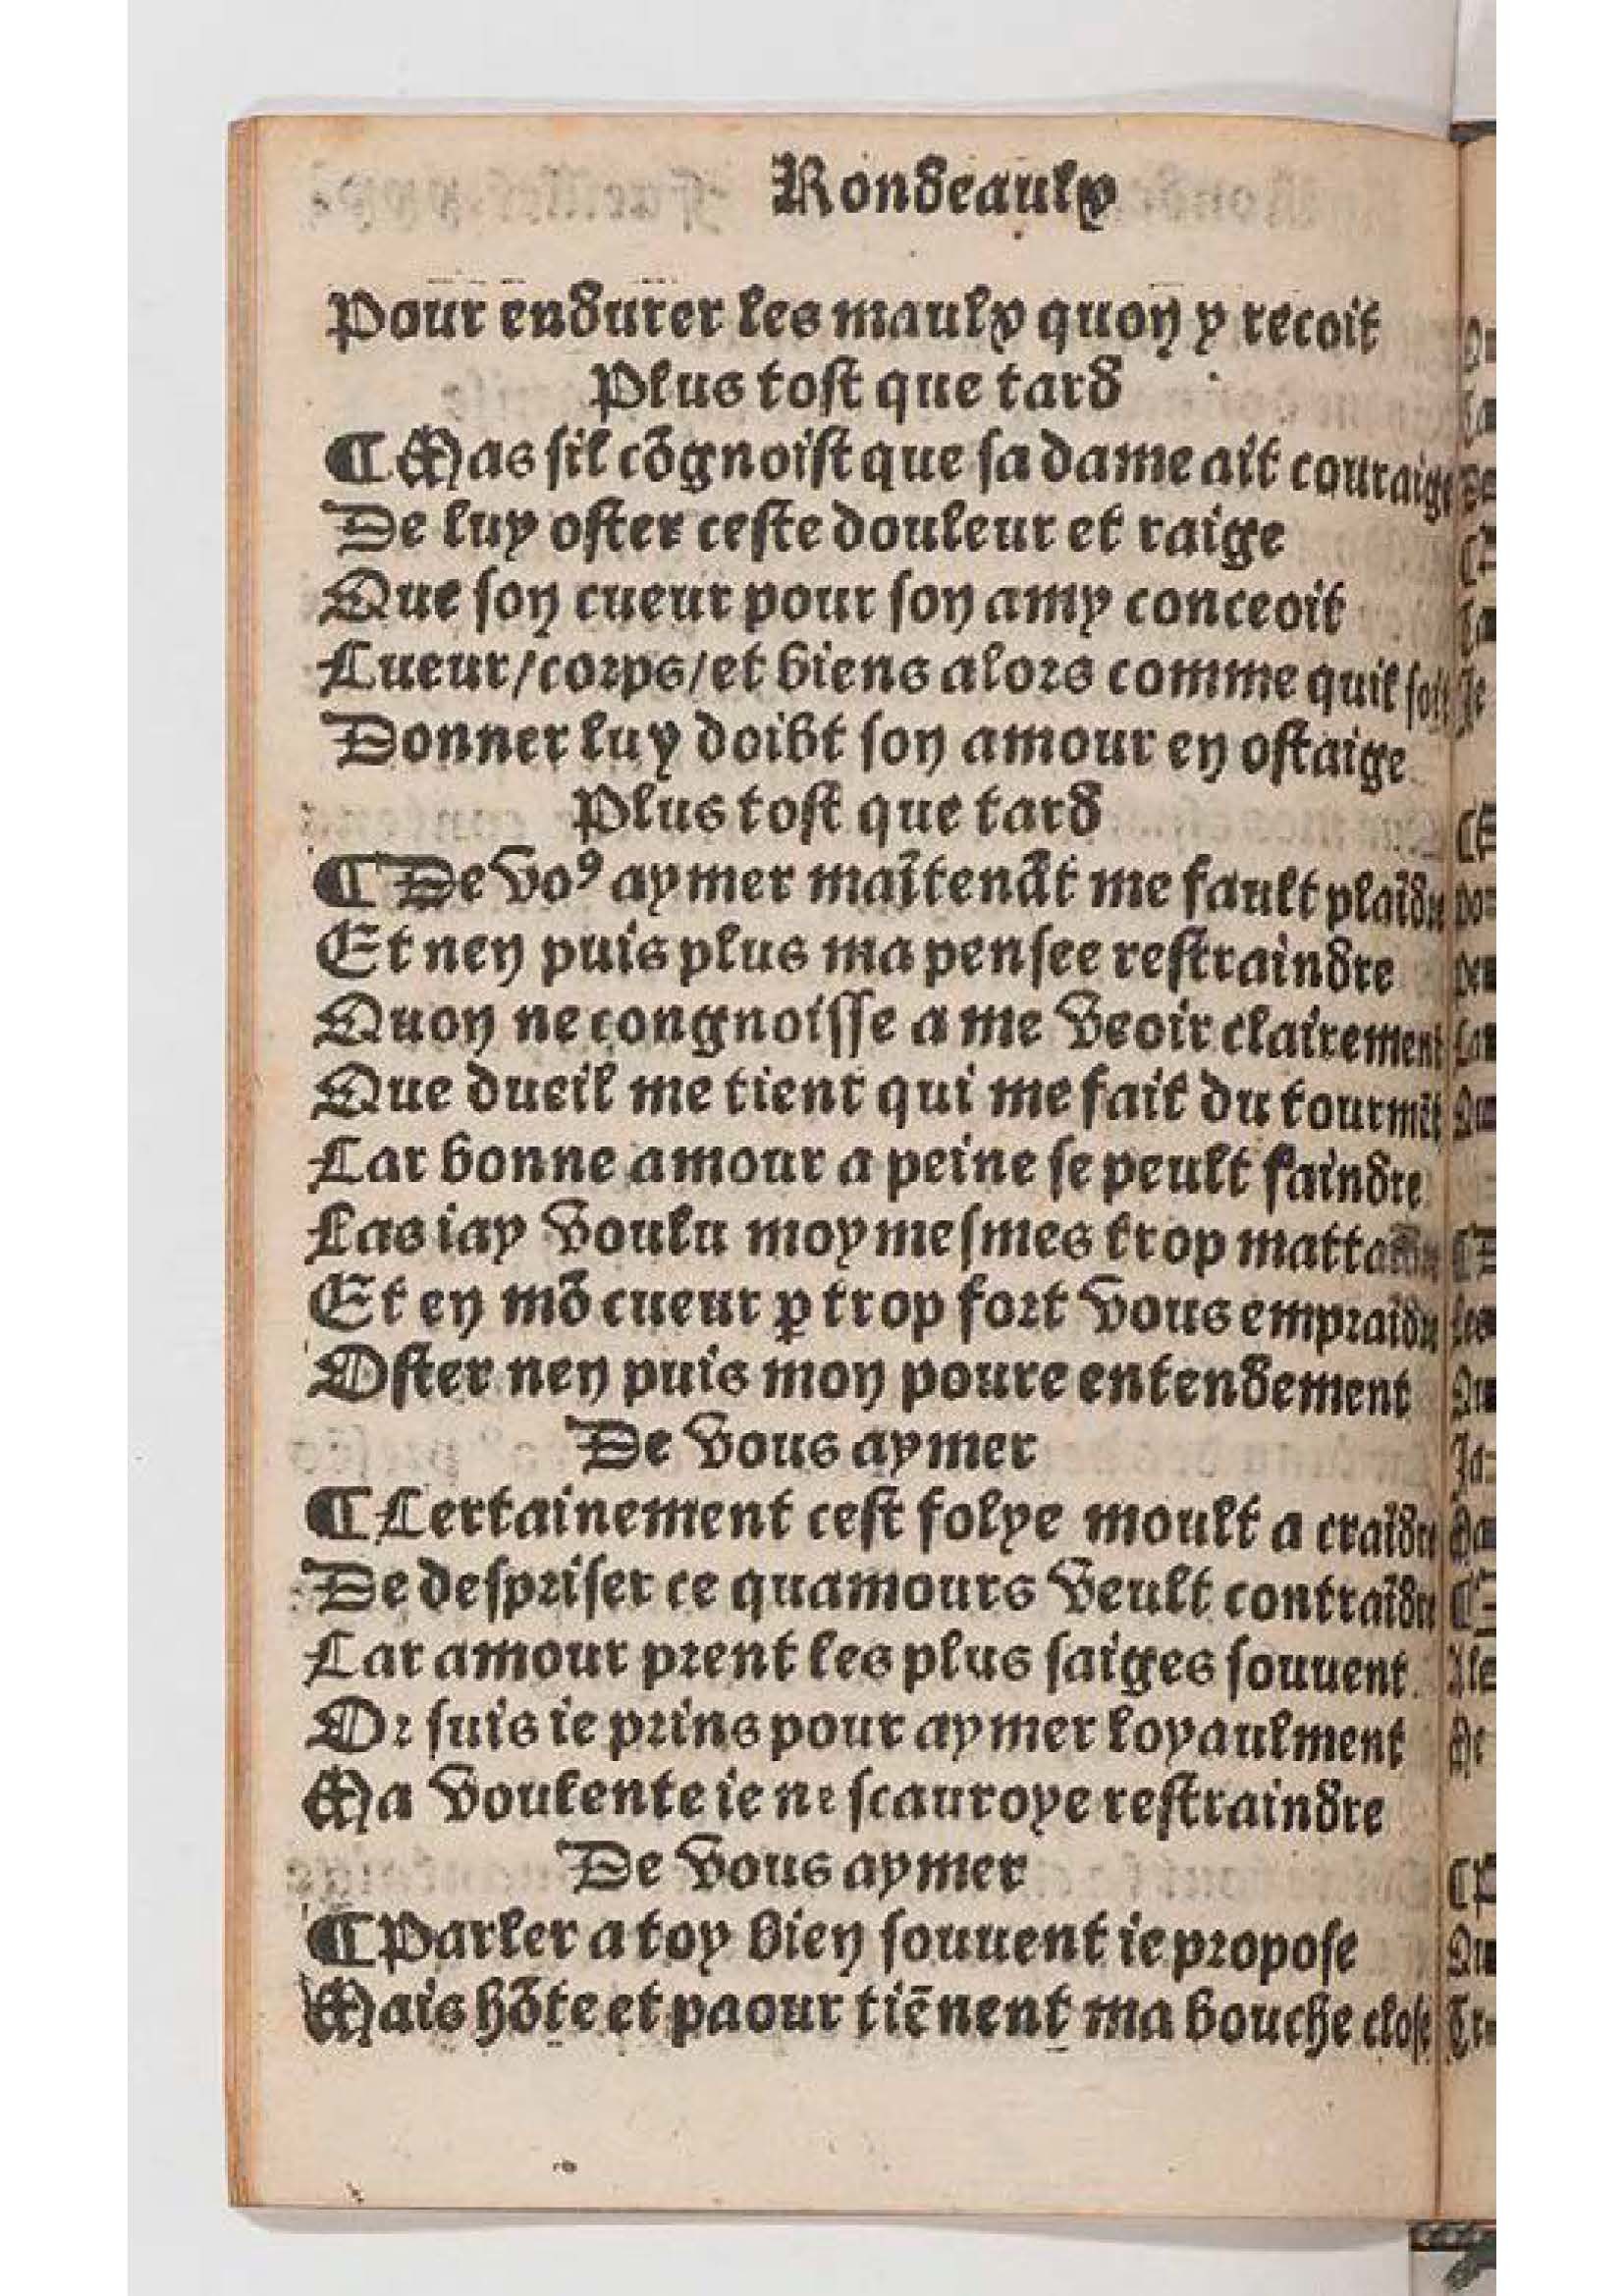 Rondeaulx
Pour endurer les maulx quon y recoit
Plus tost que tard
¶ Mas sil cõgnoist que sa dame ait couraige
De luy oster ceste douleur et raige
Que son cueur pour son amy conceoit
Cueur/corps/et biens alors comme quil soit
Donner luy doibt son amour en ostaige
Plus tost que tard
¶ De voꝰ aymer maĩtenãt me fault plaĩdre
Et nen puis plus ma pensee restraindre
Quon ne congnoisse a me veoir clairement
Que dueil me tient qui me fait du tourmẽt
Car bonne amour a peine se peult faindre
Las iay voulu moymesmes trop mattaĩdre
Et en mõ cueur ꝑ trop fort vous empraĩdre
Oster nen puis mon poure entendement
De vous aymer
¶ Certainement cest folye moult a craĩdre
De despriser ce quamours veult contraĩdre
Car amour prent les plus saiges souuent
Or suis ie prins pour aymer loyaulment
Ma voulente ie ne scauroye restraindre
De vous aymer
¶ Parler a toy bien souuent ie propose
Mais hõte et paour tiẽnent ma bouche close